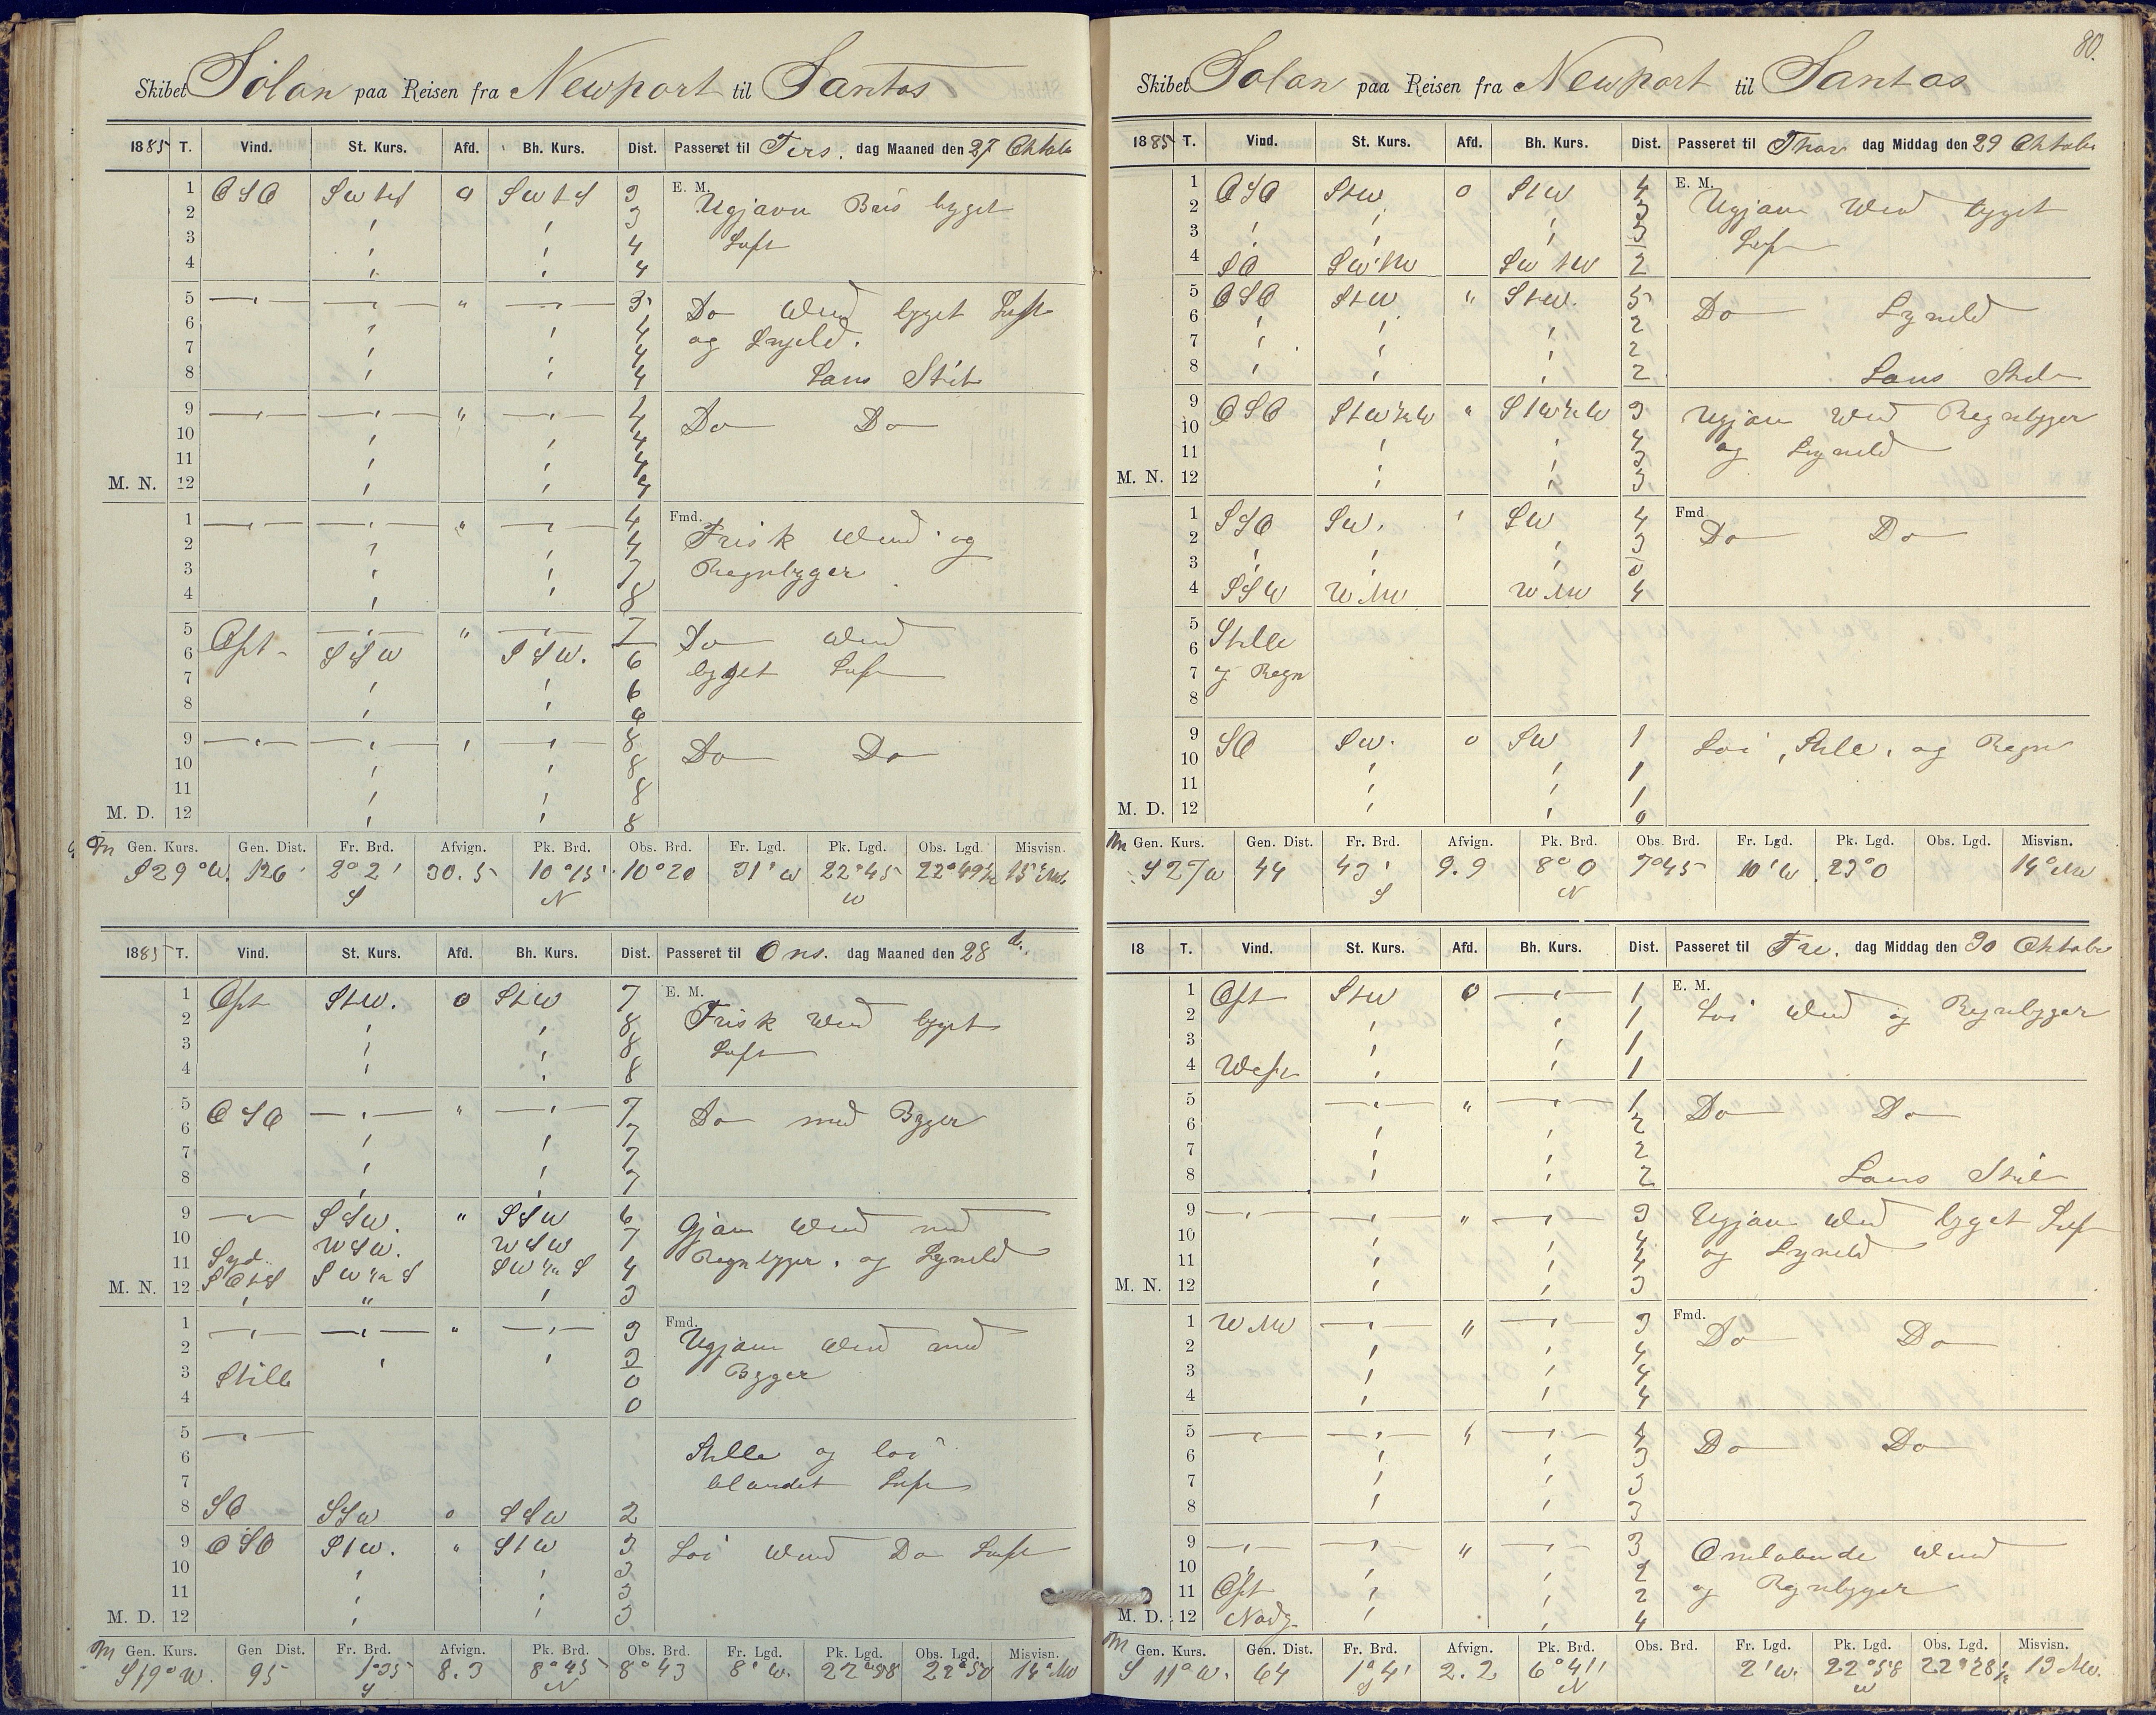 Skibet Solon paa Reisen fra Newport til Santos
1885 T. Vind. St. Kurs. Afd. Bh. Kurs. Dist. Passeret til Tirs. dag Maaned den 27 Oktob
1 OSO SwtS o SwtS 3 E. M. Ugjævn Bris bÿget
2 3
3 4 Luft
4 4
5 " 3 Do Wind bÿget Luft
6 4 og Lÿneld.
7 4
8 4 Lans Stilt
9 " 4 Do Do
10 4
11 4
M. N. 12 4
1 " 4 Fmd. Frisk Wind og
2 4
3 7 Regnbÿger
4 8
5 Ost " 7 Do Wind
6 SSW SSW. 6 bÿget Luft
7 6
8 6
9 8 Do Do
10 8
11 8
M. D. 12 8
Gen. Kurs. Gen. Dist. Fr. Brd. Afvign. Pk. Brd. Obs. Brd. Fr. Lgd. Pk. Lgd. Obs. Lgd. Misvisn.
S29°W. 126 2°2' 30.5 10°15' 10°20 31'W 22°45 22°49½
S N W
1885 T. Vind. St. Kurs. Afd. Bh. Kurs. Dist. Passeret til Ons. dag Maaned den 28 d.
1 Ost StW. o StW 7 E. M. Frisk Wind bÿget
2 8
3 8 Luft
4 8
5 OSO " 7 Do med Bÿger
6 7
7 7
8 7
9 SSW. " SSW 6 Gjævn Wind med
10 WSW. WSW 7
11 Syd. SW½S SW½S 4 Regnbÿger. og Lÿneld
M. N. 12 SOtS " 3
1 " 3 Fmd. Ugjævn Wind med
2 3
3 Stille 0 Bÿger
4 0
5
6 Stille og løi
7 blandet Luft
8 SO SSW o SSW 2
9 OSO StW. " StW 3 Løi Wind Do Luft
10 3
11 3
M. D. 12 3
Gen. Kurs. Gen Dist. Fr. Brd. Afvign. Pk. Brd. Obs. Brd. Fr. Lgd. Pk. Lgd. Obs. Lgd. Misvisn.
S19°W. 95 1°35 8.3 8°45 8°43 8'W. 22°58 22°50 14°NW
S N
80.
Skibet Solon paa Reisen fra Newport til Santos
1885 T. Vind. St. Kurs. Afd. Bh. Kurs. Dist. Passeret til Thors dag Middag den 29 Oktober
1 OSO StW o StW 4 E. M. Ugjævn Wind bÿget
2 3
3 3 Luft
4 SO SWtW SWtW 2
5 OSO StW " StW. 5 Do Lÿneld
6 2
7 2
8 2 Lans Stilt
9 OSO StW½W " StW½W 3 Ugjævn Wind Regnbÿger
10 4
11 3 og Lÿneld
M. N. 12 3
1 SSO SW. SW 4 Fmd. Do Do
2 3
3 0
4 SSW WNW WNW 4
5 Stille
6
7 og Regn
8
9 SO SW. o SW 1 Løi, Stile, og Regn
10 1
11 1
M. D. 12 0
Gen. Kurs. Gen. Dist. Fr. Brd. Afvign. Pk. Brd. Obs. Brd. Fr. Lgd. Pk. Lgd. Obs. Lgd. Misvisn.
S27W 44 43' 9.9 8°0 7°45 10'W 23°0 14°NW
S N
18 T. Vind. St. Kurs. Afd. Bh. Kurs. Dist. Passeret til Fre. dag Middag den 30 Oktober
1 Ost StW o 1 E. M. Løi Wind og Regnbÿger
2 1
3 1
4 West 1
5 " 1 Do Do
6 2
7 2
8 2 Lans Stilt
9 " 3 Ugjævn Wind bÿget Luft
10 4 og Lÿneld
11 4
M. N. 12 3
1 WNW " 3 Fmd. Do Do
2 4
3 4
4 4
5 " 4 Do Do
6 3
7 3
8 3
9 " 3 Omløbende Wind
10 2
11 Ost 2 og Regnbÿger
M. D. 12 4
Gen. Kurs. Gen. Dist. Fr. Brd. Afvign. Pk. Brd. Obs. Brd. Fr. Lgd. Pk. Lgd. Obs. Lgd. Misvisn.
S 11°W. 64 1°4' 2.2 6°41' 2'W. 22°58 22°28½ 13 NW.
S N W